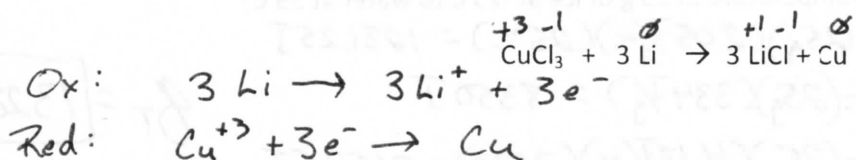 +3 -1 0 +1 -1 0
CuCl₃ + 3 Li → 3 LiCl + Cu
Ox: 3 Li → 3Li⁺ + 3e⁻
Red: Cu⁺³ + 3e⁻ → Cu